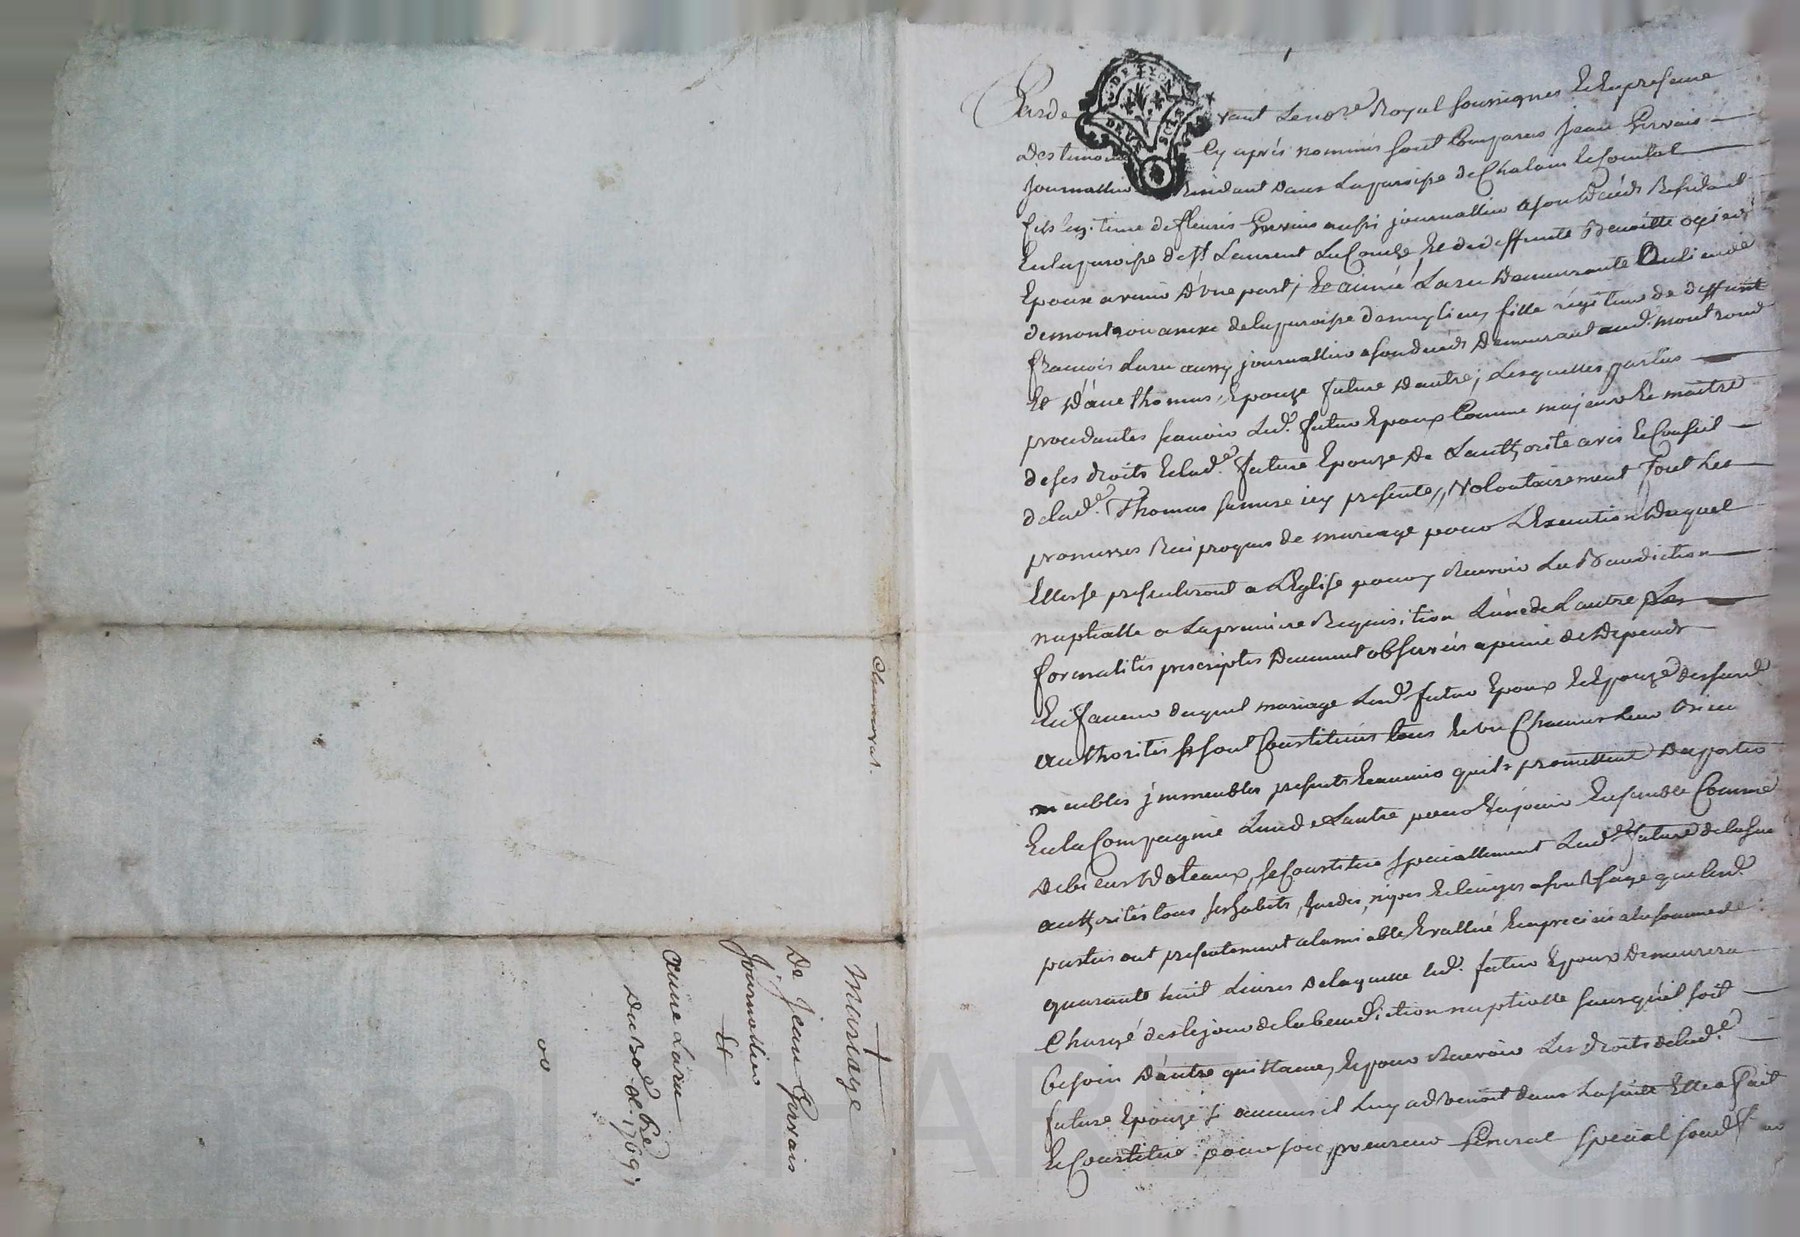 Clamaron.
Mariage
De Jean Gervais
Journallier
Et
Anne Larue
Du 30e 8bre 1769
Parde vant Le no.re Royal Soussignes Et En presence
Des temoins Cy après nommés sont Comparus Jean Gervais
Journallier Residant Dans La paroisse de Chalain le Comtal
fils legitime de fleuris Gervais aussi journallier a son deceds Residant
En la paroisse de St Laurent La Conche Et de deffunte Benoitte ogier
Epoux avenir D'une part, Et Larue Demeurante Audi
de montrond annexe de la paroisse de meylieu, fille legitime de deffunt
françois Larue aussy journallier a son deceds Demeurant aud. montrond
Et D'ane thomas, Epouze future Dautre, Lesquelles parties
procedantes scavoir Led. futur Epoux Comme majeur Et maitre
de ses droits Et lad.e future Epouze De Lauthorité avis Et Conseil
de lad.e Thomas sa mere icy presente, Volontairement font Les
promesses Reciproques de mariage pour L'Execution Duquel
Elles se presenteront a L'Eglise pour y Recevoir La Benediction
nuptialle a La premiere Requisition L'une de Lautre Les
formalités prescriptes Deument observées a peine de Depends
En faveur duquel mariage Led. futur Epoux Et Epouze
authorités se sont Constitués tous Et un Chacuns Leur Biens
meubles jmmeubles presents Et avenir quils promettent Daporter
En la Compagnie Lun de Lautre pour En jouir Ensemble Comme
De biens Doteaux, se Constitue specialement Lad.e future de la
authorités tous ses habits, hardes, nipes Et linges a son usage que les d.
parties ont presentement alamiable Evallué Et apreciés a la somme de
quarante huit Livres De laquelle led. futur Epoux Demeurera
Chargé des le jour de la benediction nuptialle sans quil soit
besoin D'autre quittance, Et pour Recevoir Les droits de lad.e
future Epouze si aucuns il Luy advenoit dans La suitte Elle a fait
Et Constitue pour son procureur General special